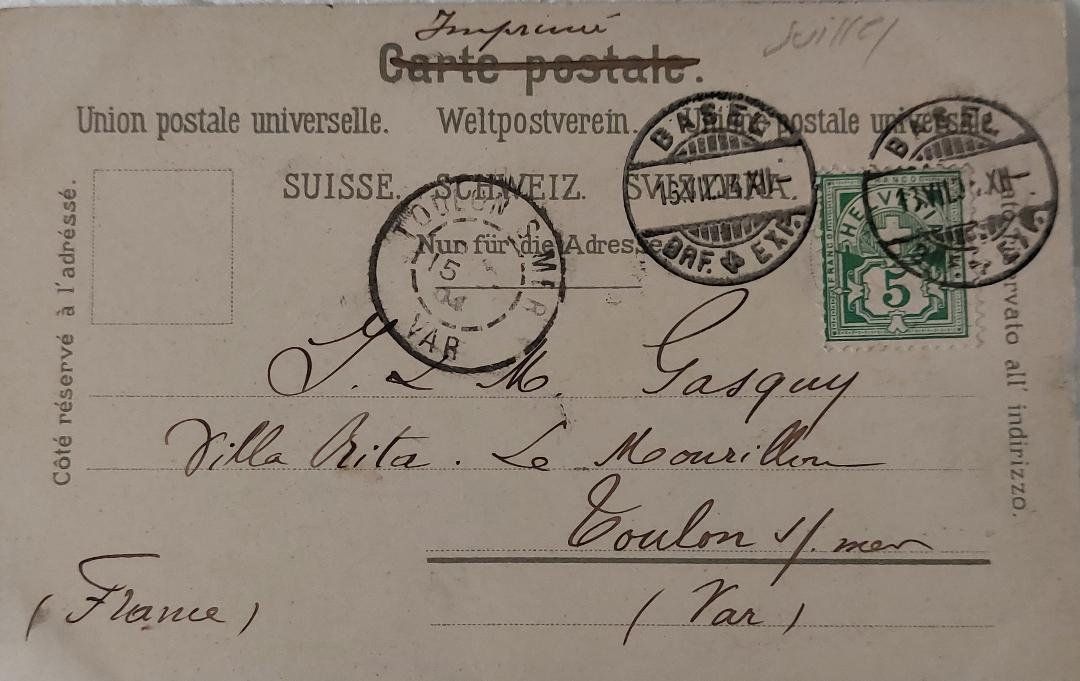 Imprimé
Carte postale.
Union postale universelle. Weltpostverein. Unione postale universale.
SUISSE. SCHWEIZ. SVIZZERA.
Nur für die Adresse.
Côté réservé à l'adresse.
Lato riservato all' indirizzo.
BASEL
BRF. EXP.
BASEL
TOULON S. MER
15
04
VAR
FRANCO
HELVETIA
5
J. L. M. Gasquy
Villa Rita. Le Mourillon
Toulon s/. mer
(France) (Var)